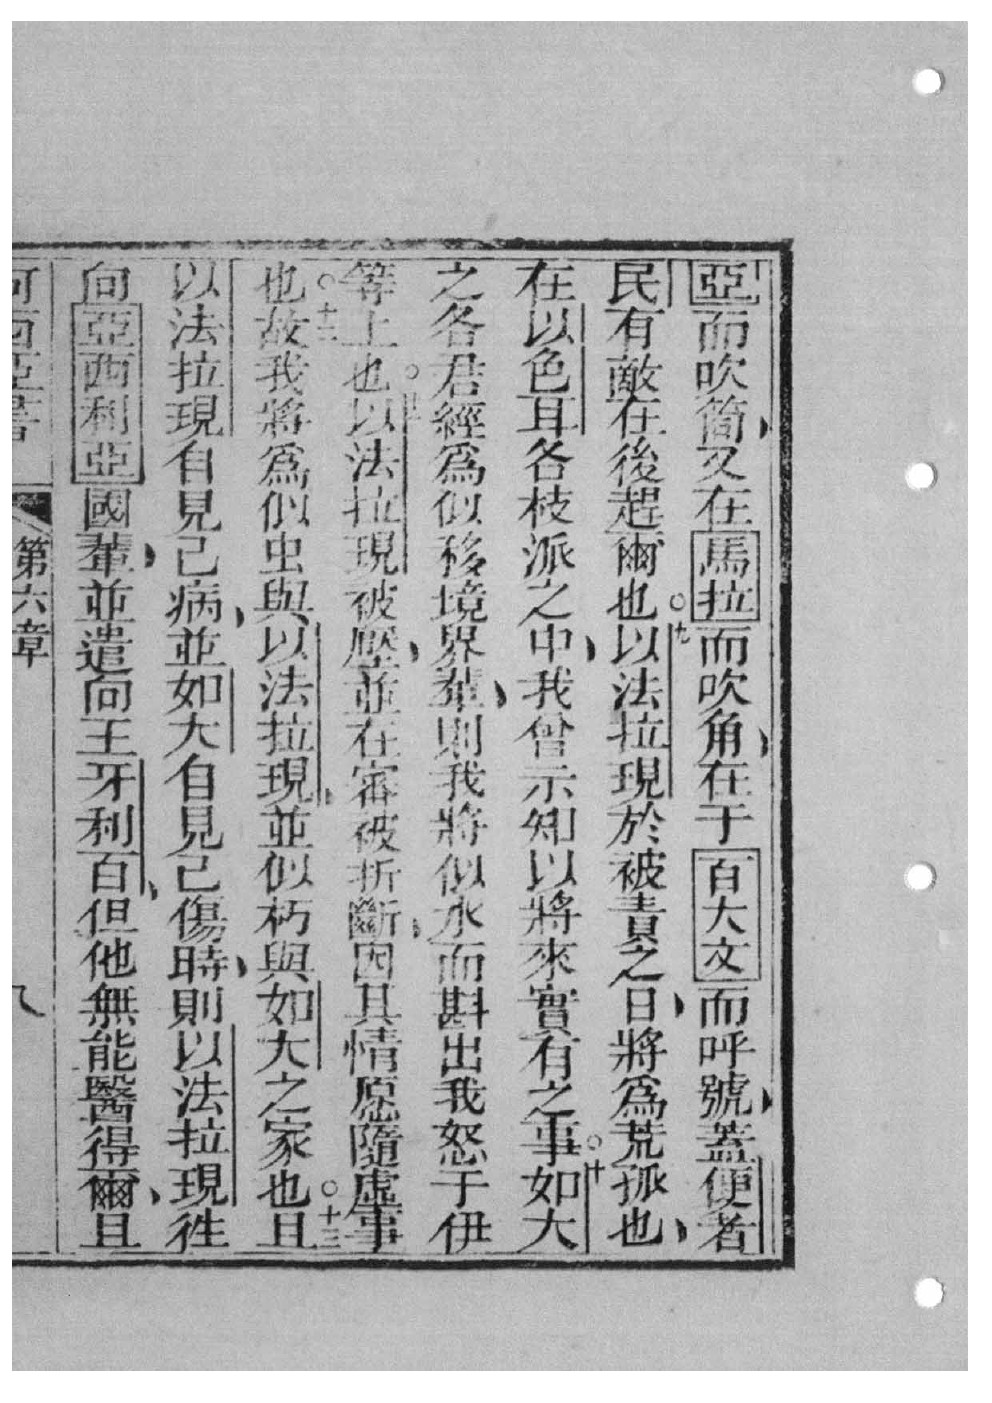 亞而吹簡又在馬拉而吹角在于百大文而呼號蓋便者
民有敵在後趕爾也○九以法拉現於被責之日將爲荒孤也
在以色耳各枝派之中我曾示知以將來實有之事○十如大
之各君經爲似移境界輩則我將似水而斟出我怒于伊
等上也○十一以法拉現被壓並在審被折斷因其情愿隨虛事
也○十二故我將爲似虫與以法拉現並似朽與如大之家也○十三且
以法拉現自見己病並如大自見己傷時則以法拉現徃
向亞西利亞國輩並遣向王牙利百但他無能醫得爾且
何西亞書 第六章 八